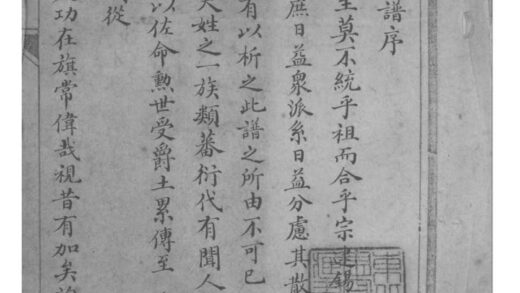 譜序
莫不統乎祖而合乎宗錫
庶日益衆派系日益分慮其散
有以析之此譜之所由不可已
大姓之一族類蕃衍代有聞人
以佐命勲世受爵土累傳至
從
功在旗常偉哉視昔有加矣